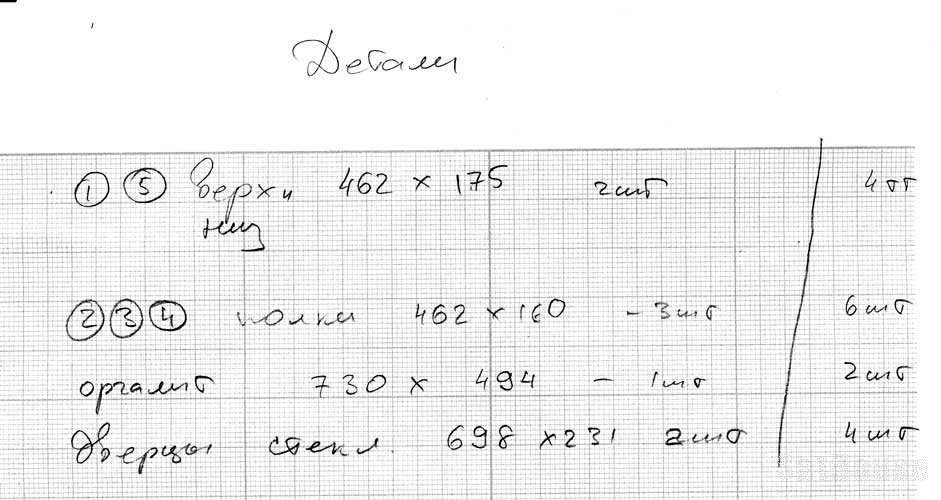 Детали
① ⑤ верх и 462 x 175 2шт 4шт
низ
② ③ ④ полки 462 x 160 - 3шт 6шт
оргалит 730 x 494 - 1шт 2шт
дверцы стекл. 698 x 231 2шт 4шт